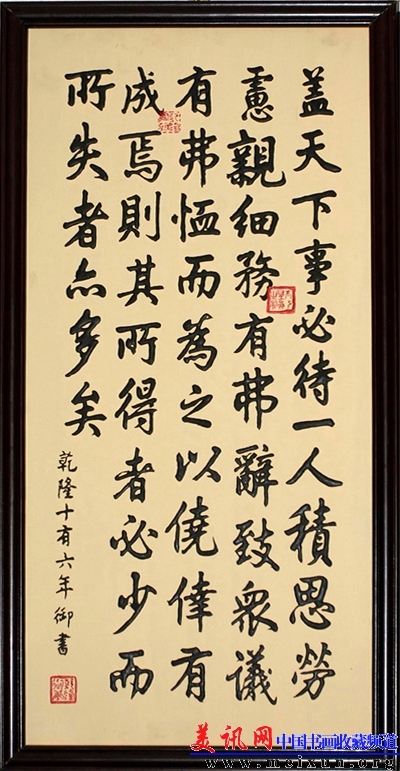 盖天下事必待一人積思勞
慮親細務有弗辭致衆議
有弗恤而為之以僥倖有
成焉則其所得者必少而
所失者亦多矣
乾隆十有六年御書
美讯网 中国书画收藏频道
www.meixun.org